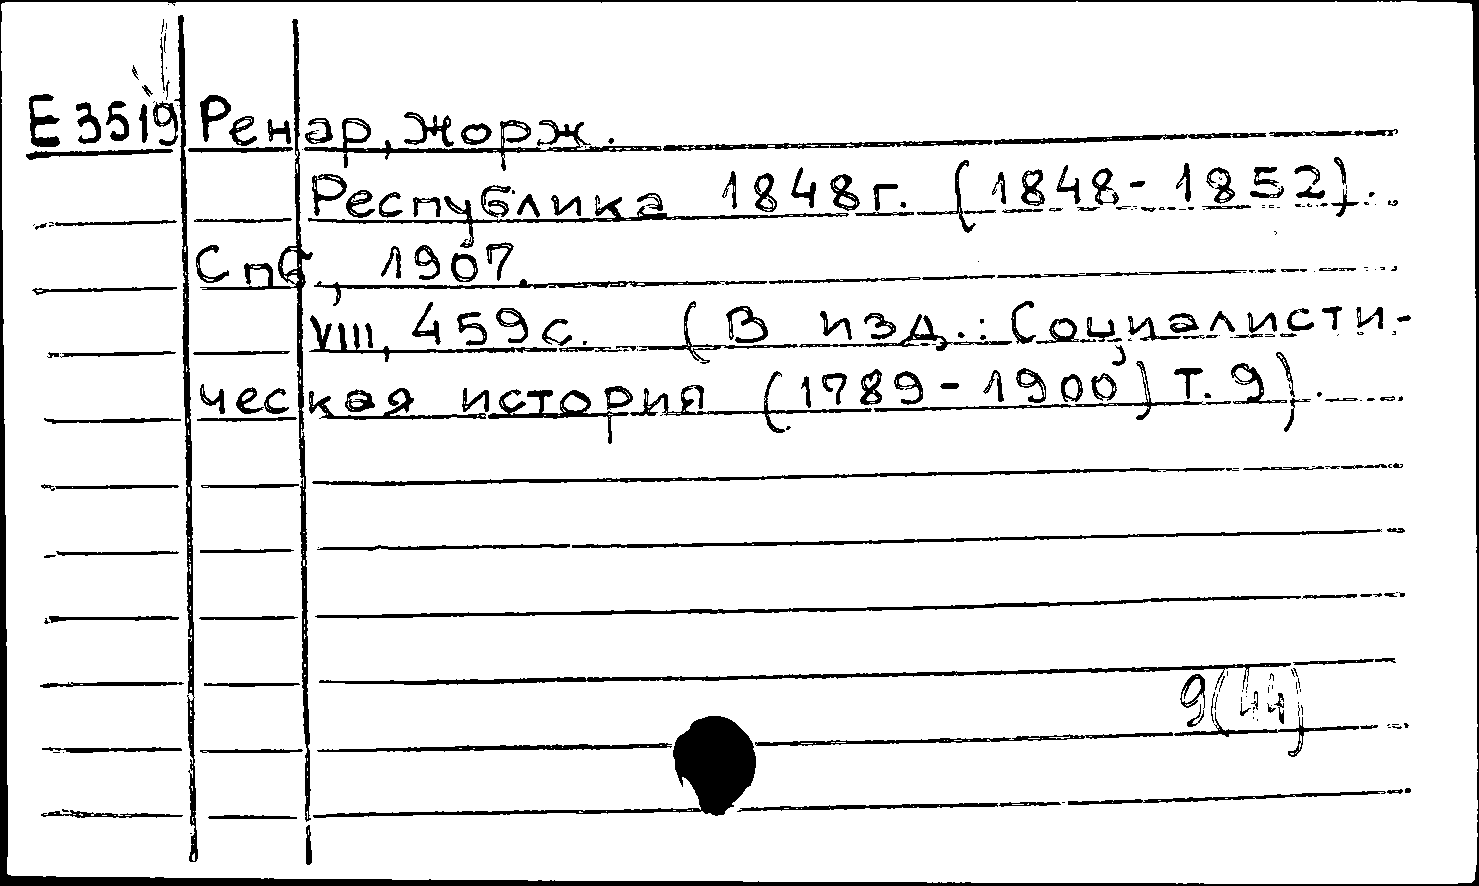 Е 3519 Ренар, Жорж.
Республика 1848г. (1848-1852).
Спб, 1907.
VIII, 459с. (В изд.: Социалисти-
ческая история (1789-1900) Т. 9).
9(44)